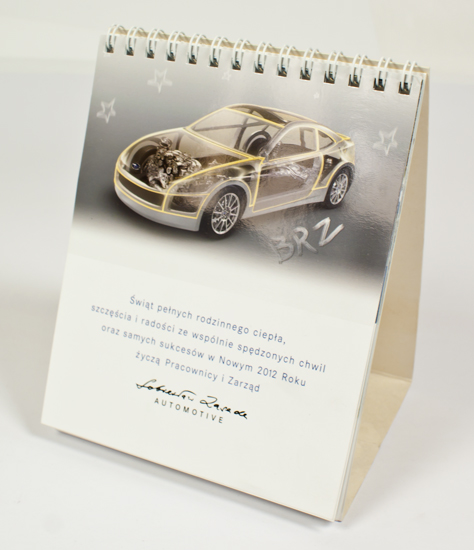 BRZ
Świąt pełnych rodzinnego ciepła,
szczęścia i radości ze wspólnie spędzonych chwil
oraz samych sukcesów w Nowym 2012 Roku
życzą Pracownicy i Zarząd
Sobiesław Zasada
AUTOMOTIVE